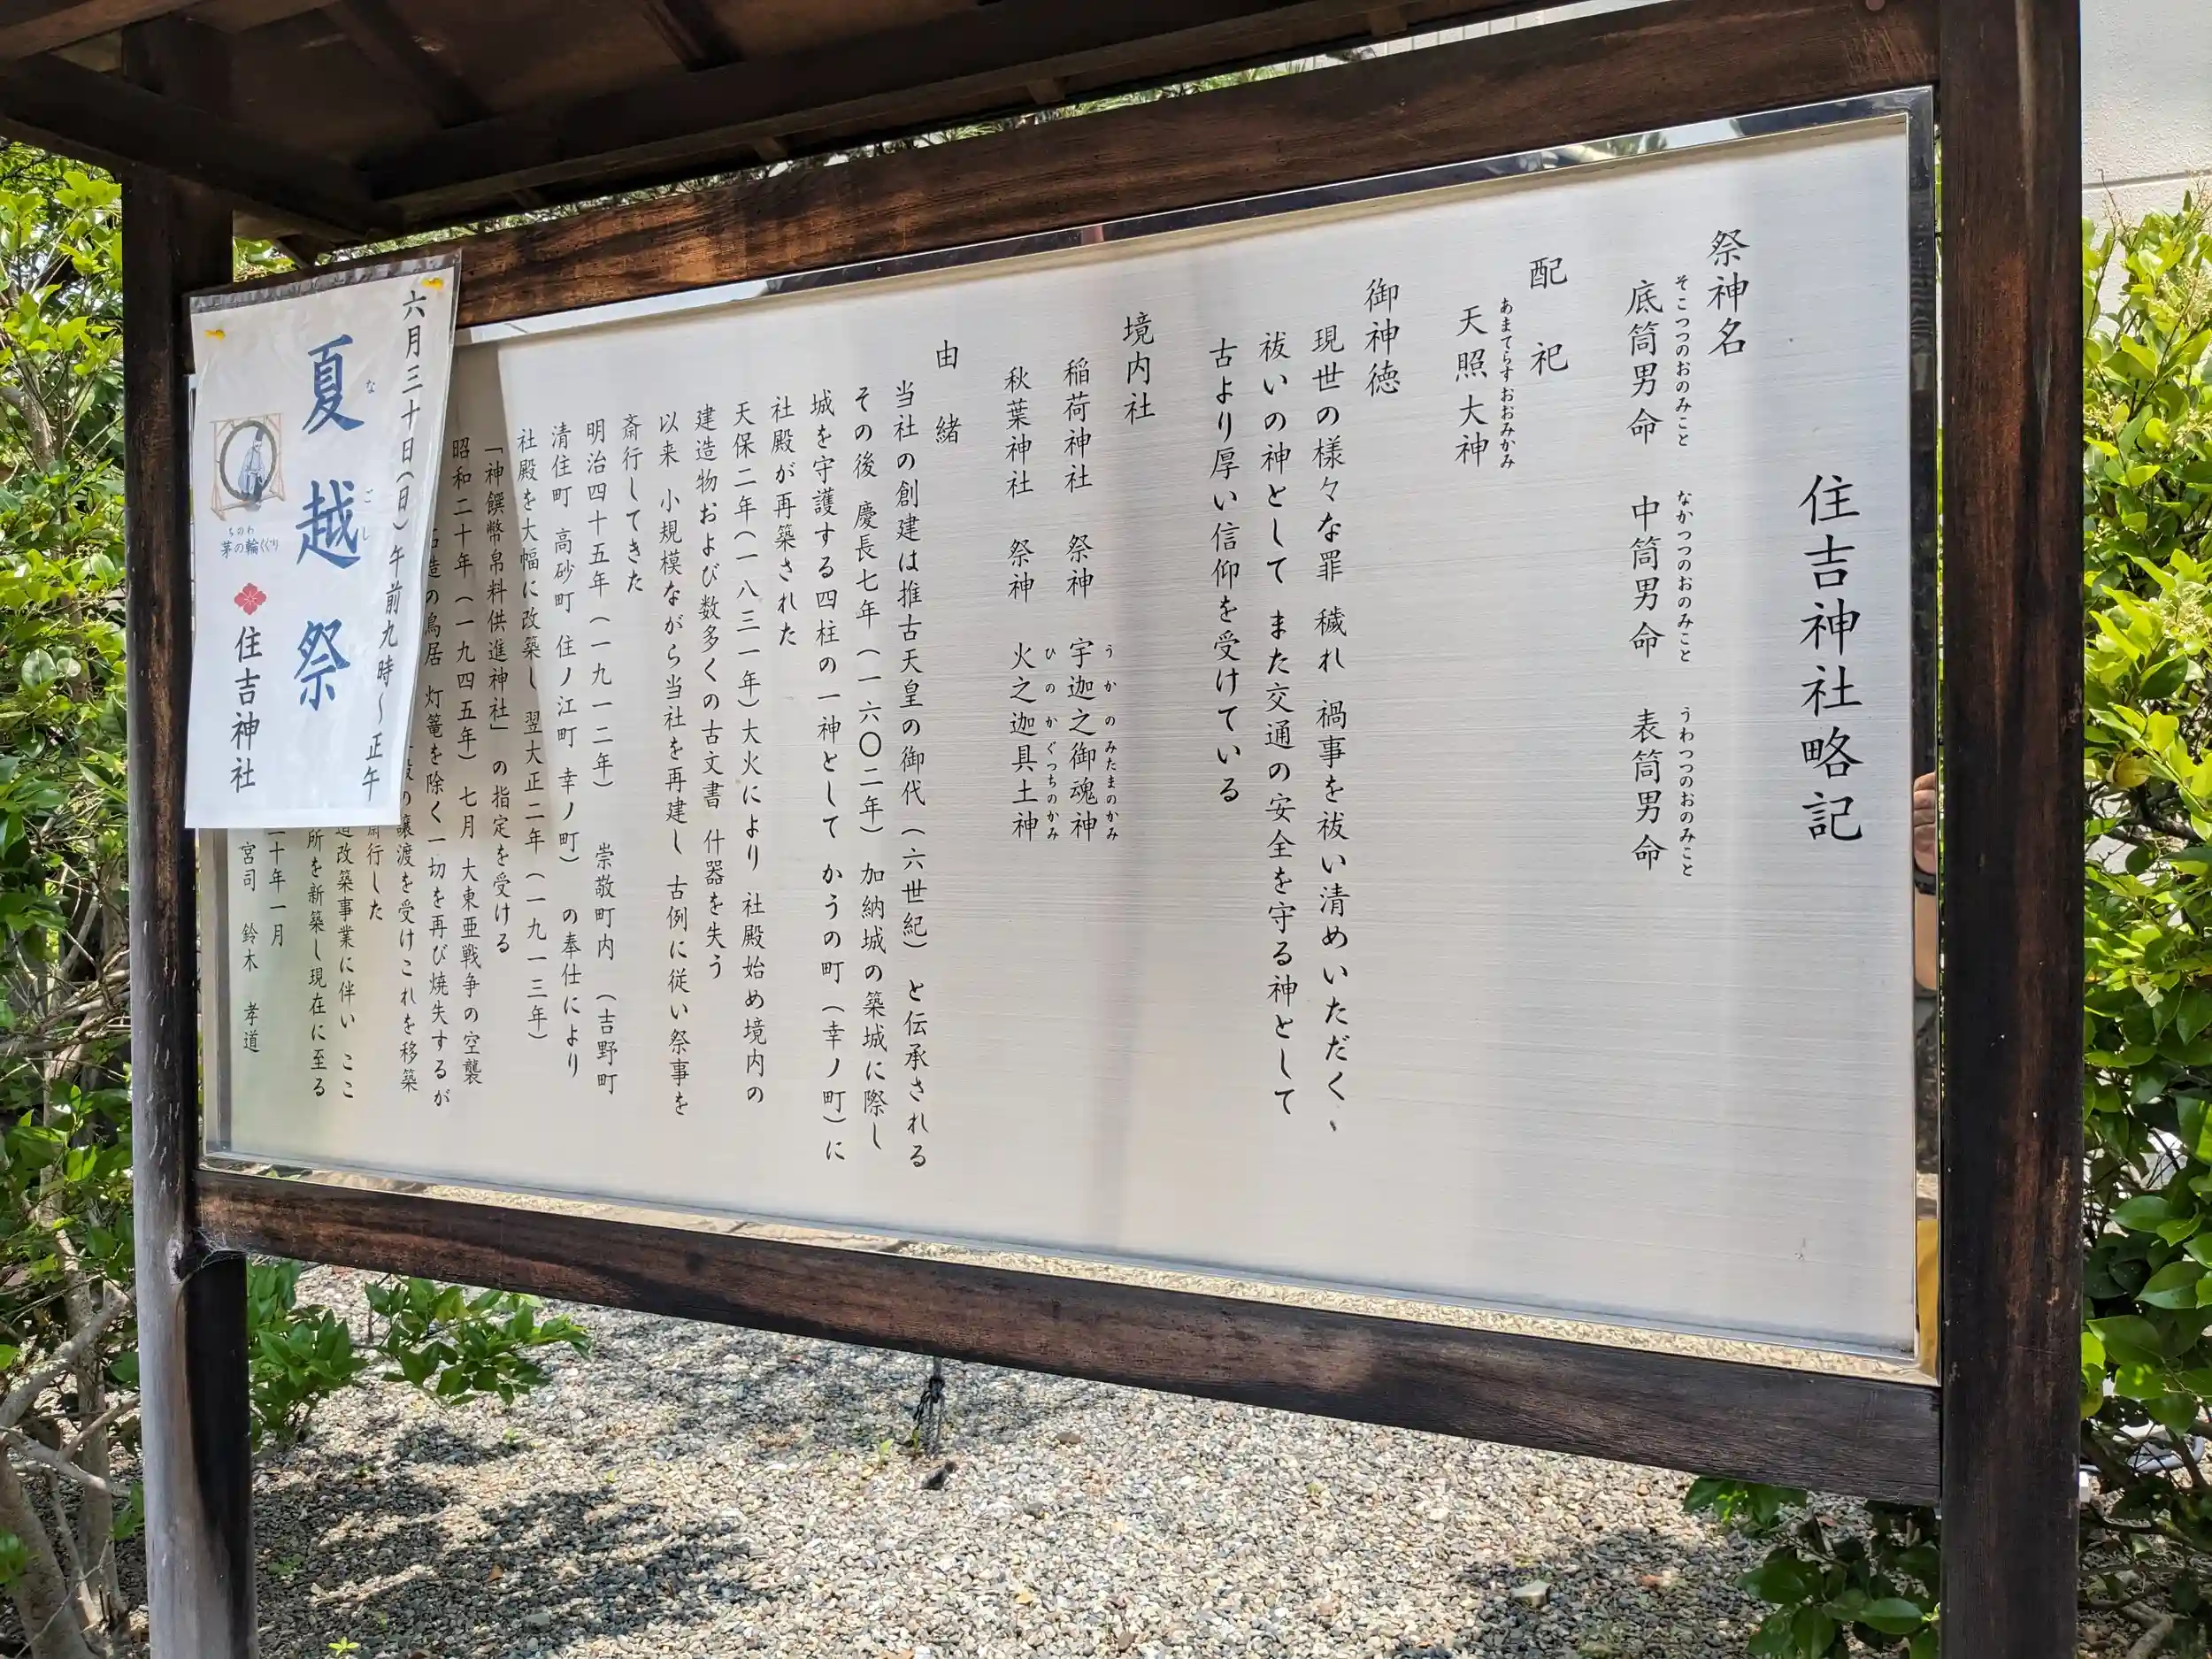 住吉神社略記
祭神名
そこつつのおのみこと なかつつのおのみこと うわつつのおのみこと
底筒男命 中筒男命 表筒男命
配祀
あまてらすおおみかみ
天照大神
御神徳
現世の様々な罪 穢れ 禍事を祓い清めいただく、
祓いの神として また交通の安全を守る神として
古より厚い信仰を受けている
境内社
うかのみたまのかみ
稲荷神社 祭神 宇迦之御魂神
ひのかぐつちのかみ
秋葉神社 祭神 火之迦具土神
由緒
当社の創建は推古天皇の御代（六世紀）と伝承される
その後 慶長七年（一六〇二年）加納城の築城に際し
城を守護する四柱の一神として かうの町（幸ノ町）に
社殿が再築された
天保二年（一八三一年）大火により 社殿始め境内の
建造物および数多くの古文書 什器を失う
以来 小規模ながら当社を再建し 古例に従い祭事を
斎行してきた
明治四十五年（一九一二年） 崇敬町内（吉野町
清住町 高砂町 住ノ江町 幸ノ町）の奉仕により
社殿を大幅に改築し 翌大正二年（一九一三年）
「神饌幣帛料供進神社」の指定を受ける
昭和二十年（一九四五年）七月 大東亜戦争の空襲
造の鳥居 灯篭を除く一切を再び焼失するが
の譲渡を受けこれを移築
斎行した
造改築事業に伴い ここ
所を新築し現在に至る
十年一月
宮司 鈴木 孝道
六月三十日（日）午前九時～正午
なごし
夏越祭
ちのわ
茅の輪くぐり
住吉神社